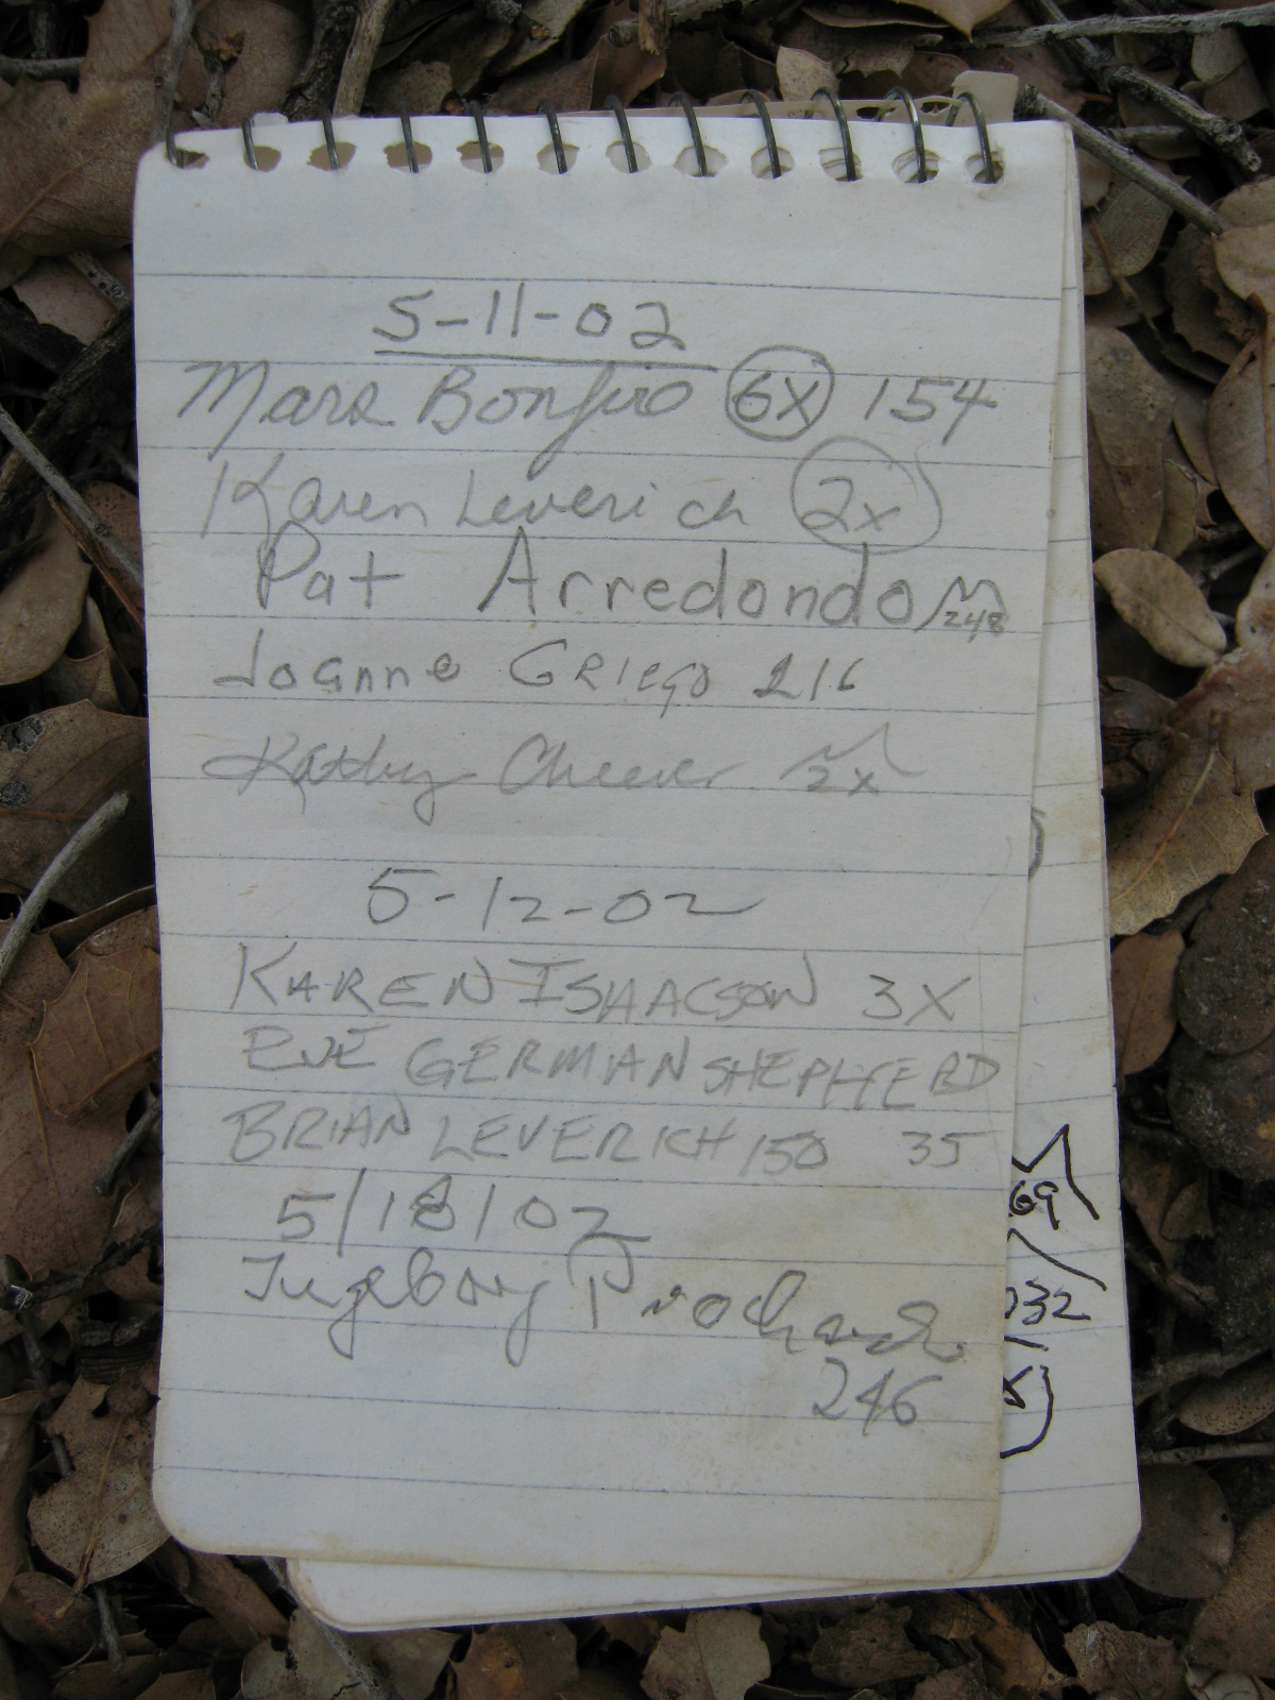 5-11-02
Mars Bonfire 6X 154
Karen Leverich 2x
Pat Arredondo 248
Joanne Griego 216
Kathy Cheever 2x
5-12-02
KAREN ISHAACSON 3X
EVE GERMAN SHEPHERD
BRIAN LEVERICH 150 35
5/18/02
Ingeborg Prochazka
246
69
032